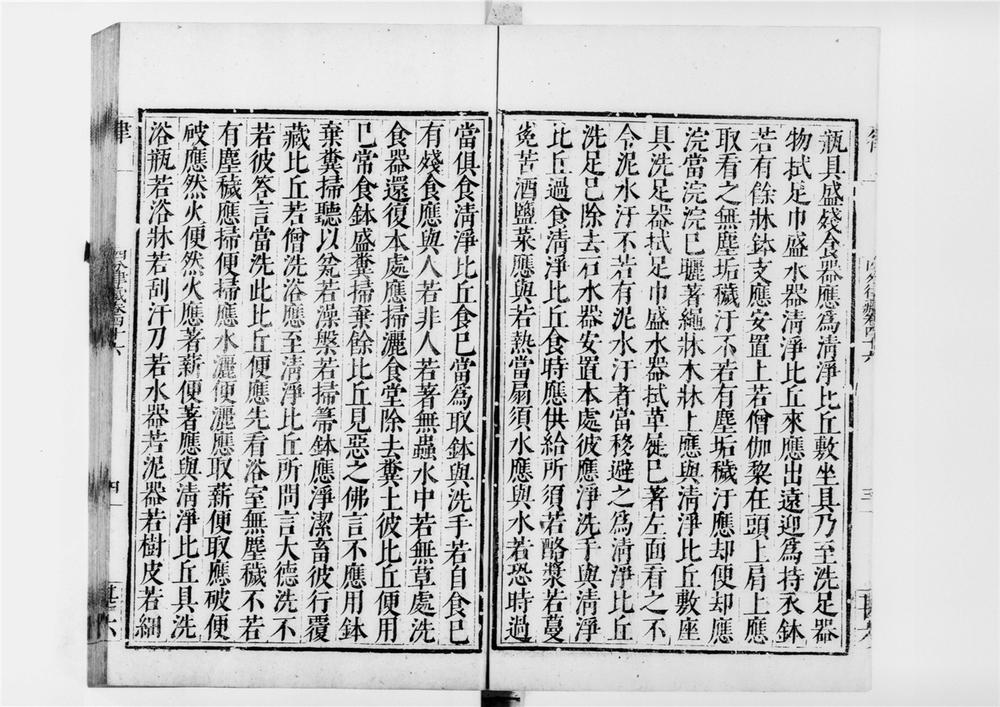 瓶具盛殘食器應爲清淨比丘敷坐具乃至洗足器
物拭足巾盛水器清淨比丘來應出遠迎爲持衣鉢
若有餘牀鉢支應安置上若僧伽黎在頭上肩上應
取看之無塵垢穢汙不若有塵垢穢汙應却便却應
浣當浣浣已曬著繩牀木牀上應與清淨比丘敷座
具洗足器拭足巾盛水器拭革屣已著左面看之不
令泥水汙不若有泥水汙者當移避之爲清淨比丘
洗足已除去石水器安置本處彼應淨洗手與清淨
比丘過食清淨比丘食時應供給所須若酪漿若蔓
菟苦酒鹽菜應與若熱當扇須水應與水若恐時過
當俱食清淨比丘食已當爲取鉢與洗手若自食已
有殘食應與人若非人若著無蟲水中若無草處洗
食器還復本處應掃灑食堂除去糞土彼比丘便用
已常食鉢盛糞掃棄餘比丘見惡之佛言不應用鉢
棄糞掃聽以瓮若澡槃若掃箒鉢應淨潔畜彼行覆
藏比丘若僧洗浴應至清淨比丘所問言大德洗不
若彼答言當洗此比丘便應先看浴室無塵穢不若
有塵穢應掃便掃應水灑便灑應取薪便取應破便
破應然火便然火應著薪便著應與清淨比丘具洗
浴瓶若浴牀若刮汗刀若水器若泥器若樹皮若細
律
四
甚六
三